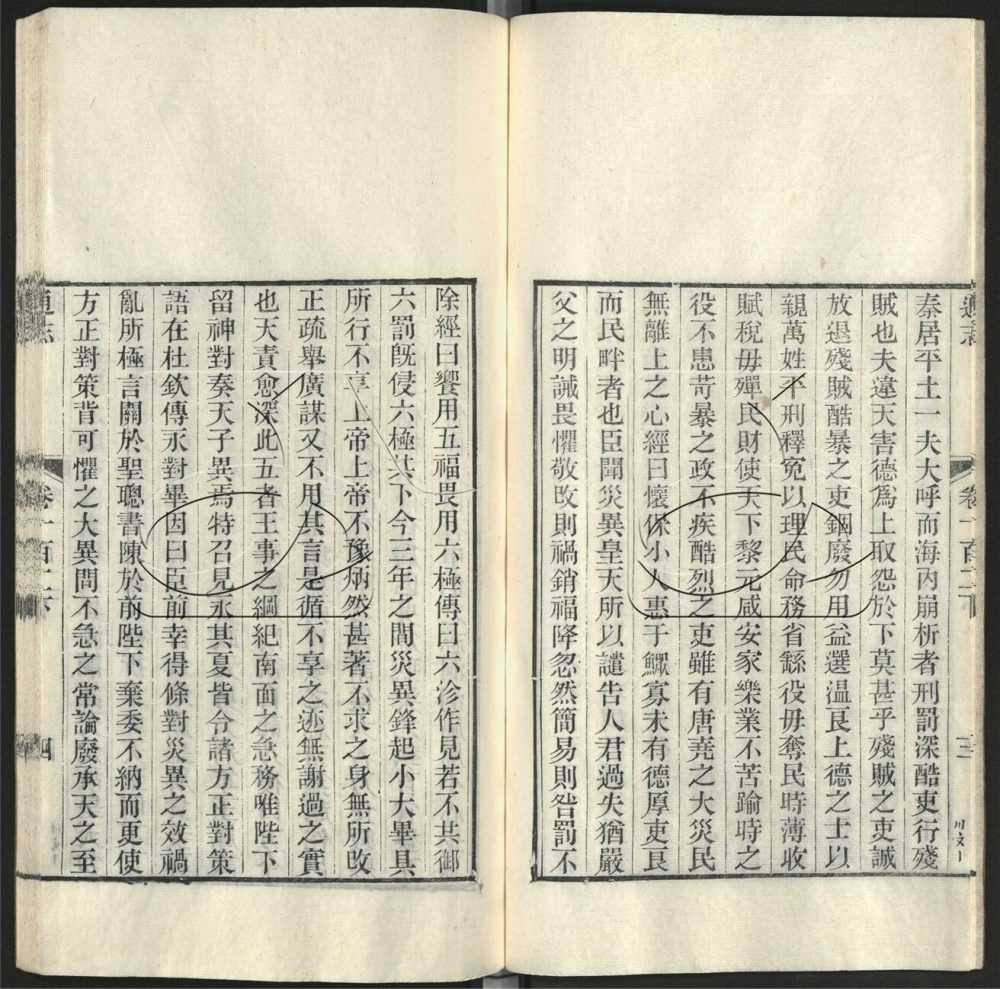 秦居平土一夫大呼而海內崩析者刑罰深酷吏行殘
賊也夫違天害德爲上取怨於下莫甚乎殘賊之吏誠
放退殘賊酷暴之吏錮廢勿用益選溫良上德之士以
親萬姓平刑釋冤以理民命務省繇役毋奪民時薄收
賦稅毋殫民財使天下黎元咸安家樂業不苦踰時之
役不患苛暴之政不疾酷烈之吏雖有唐堯之大災民
無離上之心經曰懷保小人惠于鰥寡未有德厚吏良
而民畔者也臣聞災異皇天所以譴告人君過失猶嚴
父之明誡畏懼敬改則禍銷福降忽然簡易則咎罰不
除經曰饗用五福畏用六極傳曰六沴作見若不共御
六罰旣侵六極其下今三年之間災異鋒起小大畢具
所行不享上帝上帝不豫炳然甚著不求之身無所改
正疏舉廣謀又不用其言是循不享之迹無謝過之實
也天責愈深此五者王事之綱紀南面之急務唯陛下
留神對奏天子異焉特召見永其夏皆令諸方正對策
語在杜欽傳永對畢因曰臣前幸得條對災異之效禍
亂所極言關於聖聰書陳於前陛下棄委不納而更使
方正對策背可懼之大異問不急之常論廢承天之至
通志
四